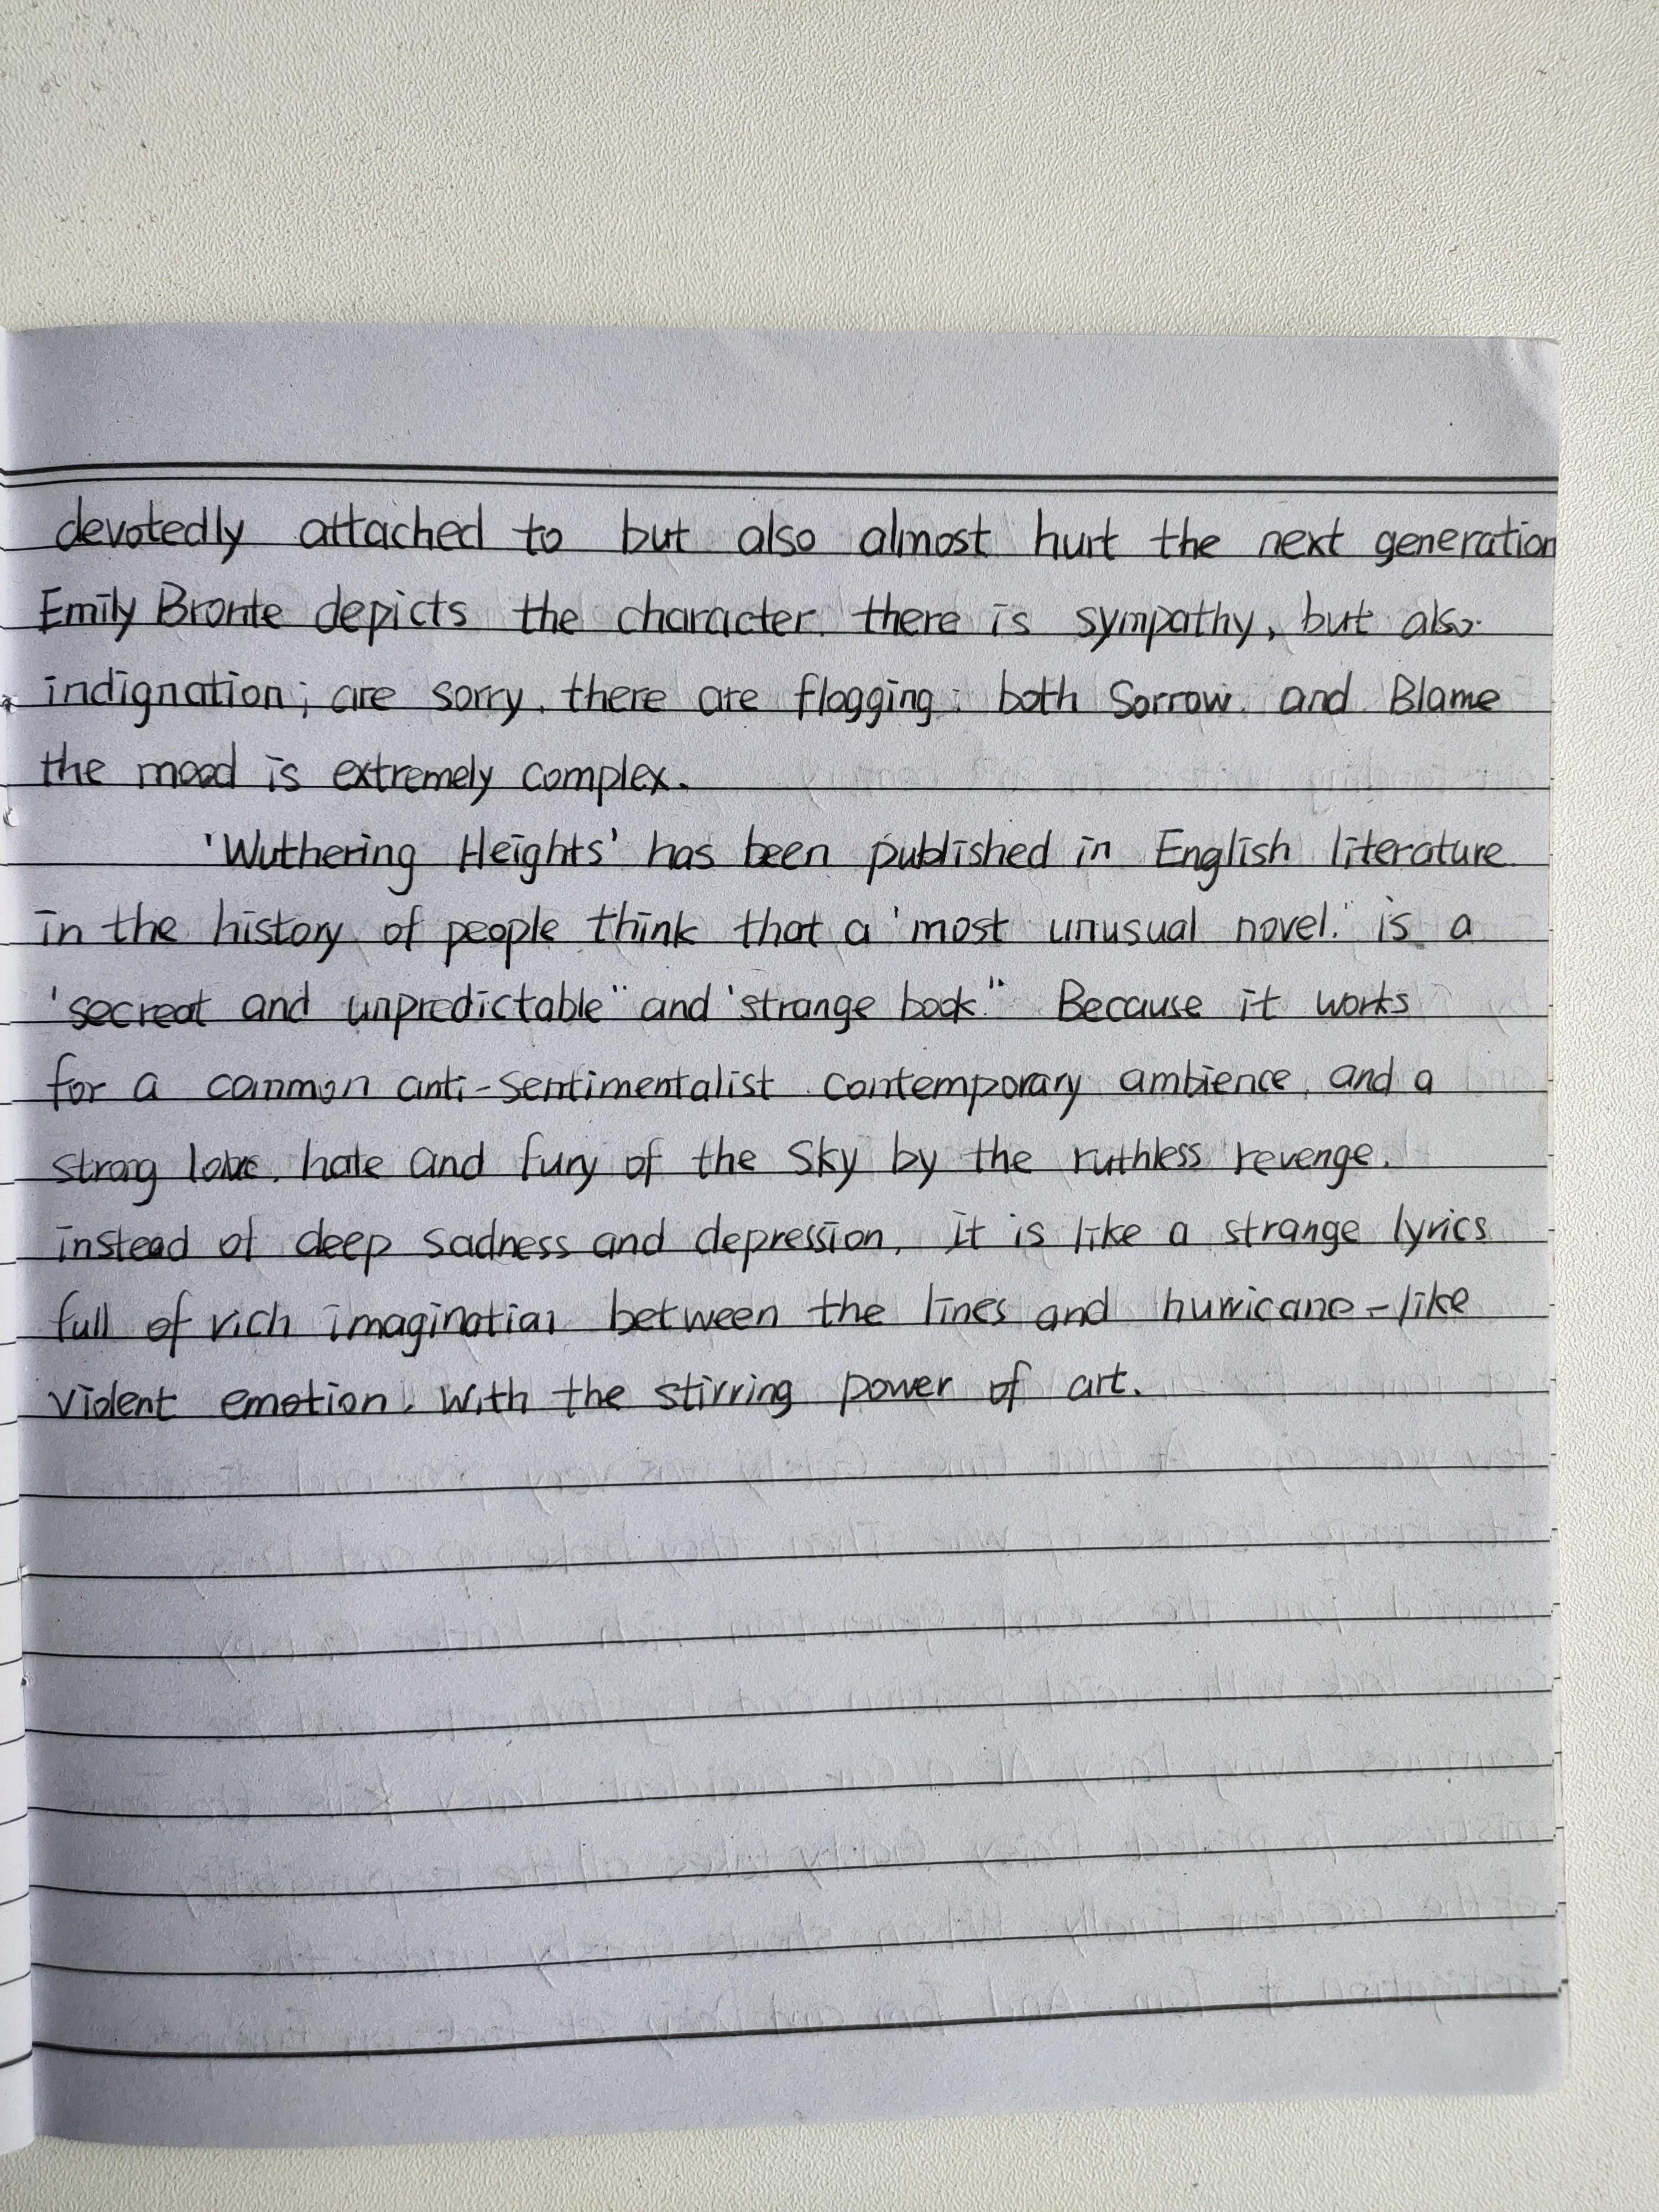 devotedly attached to but also almost hurt the next generation
Emily Bronte depicts the character. there is sympathy, but also
indignation; are sorry. there are flogging; both Sorrow. and Blame
the mood is extremely complex.
'Wuthering Heights' has been published in English literature
in the history of people think that a 'most unusual novel." is a
'secreat and unpredictable" and 'strange book." Because it works
for a common anti-sentimentalist contemporary ambience, and a
strong love. hate and fury of the sky by the ruthless revenge.
instead of deep sadness and depression. it is like a strange lyrics
full of rich imagination between the lines and hurricane-like
violent emotion. with the stirring power of art.